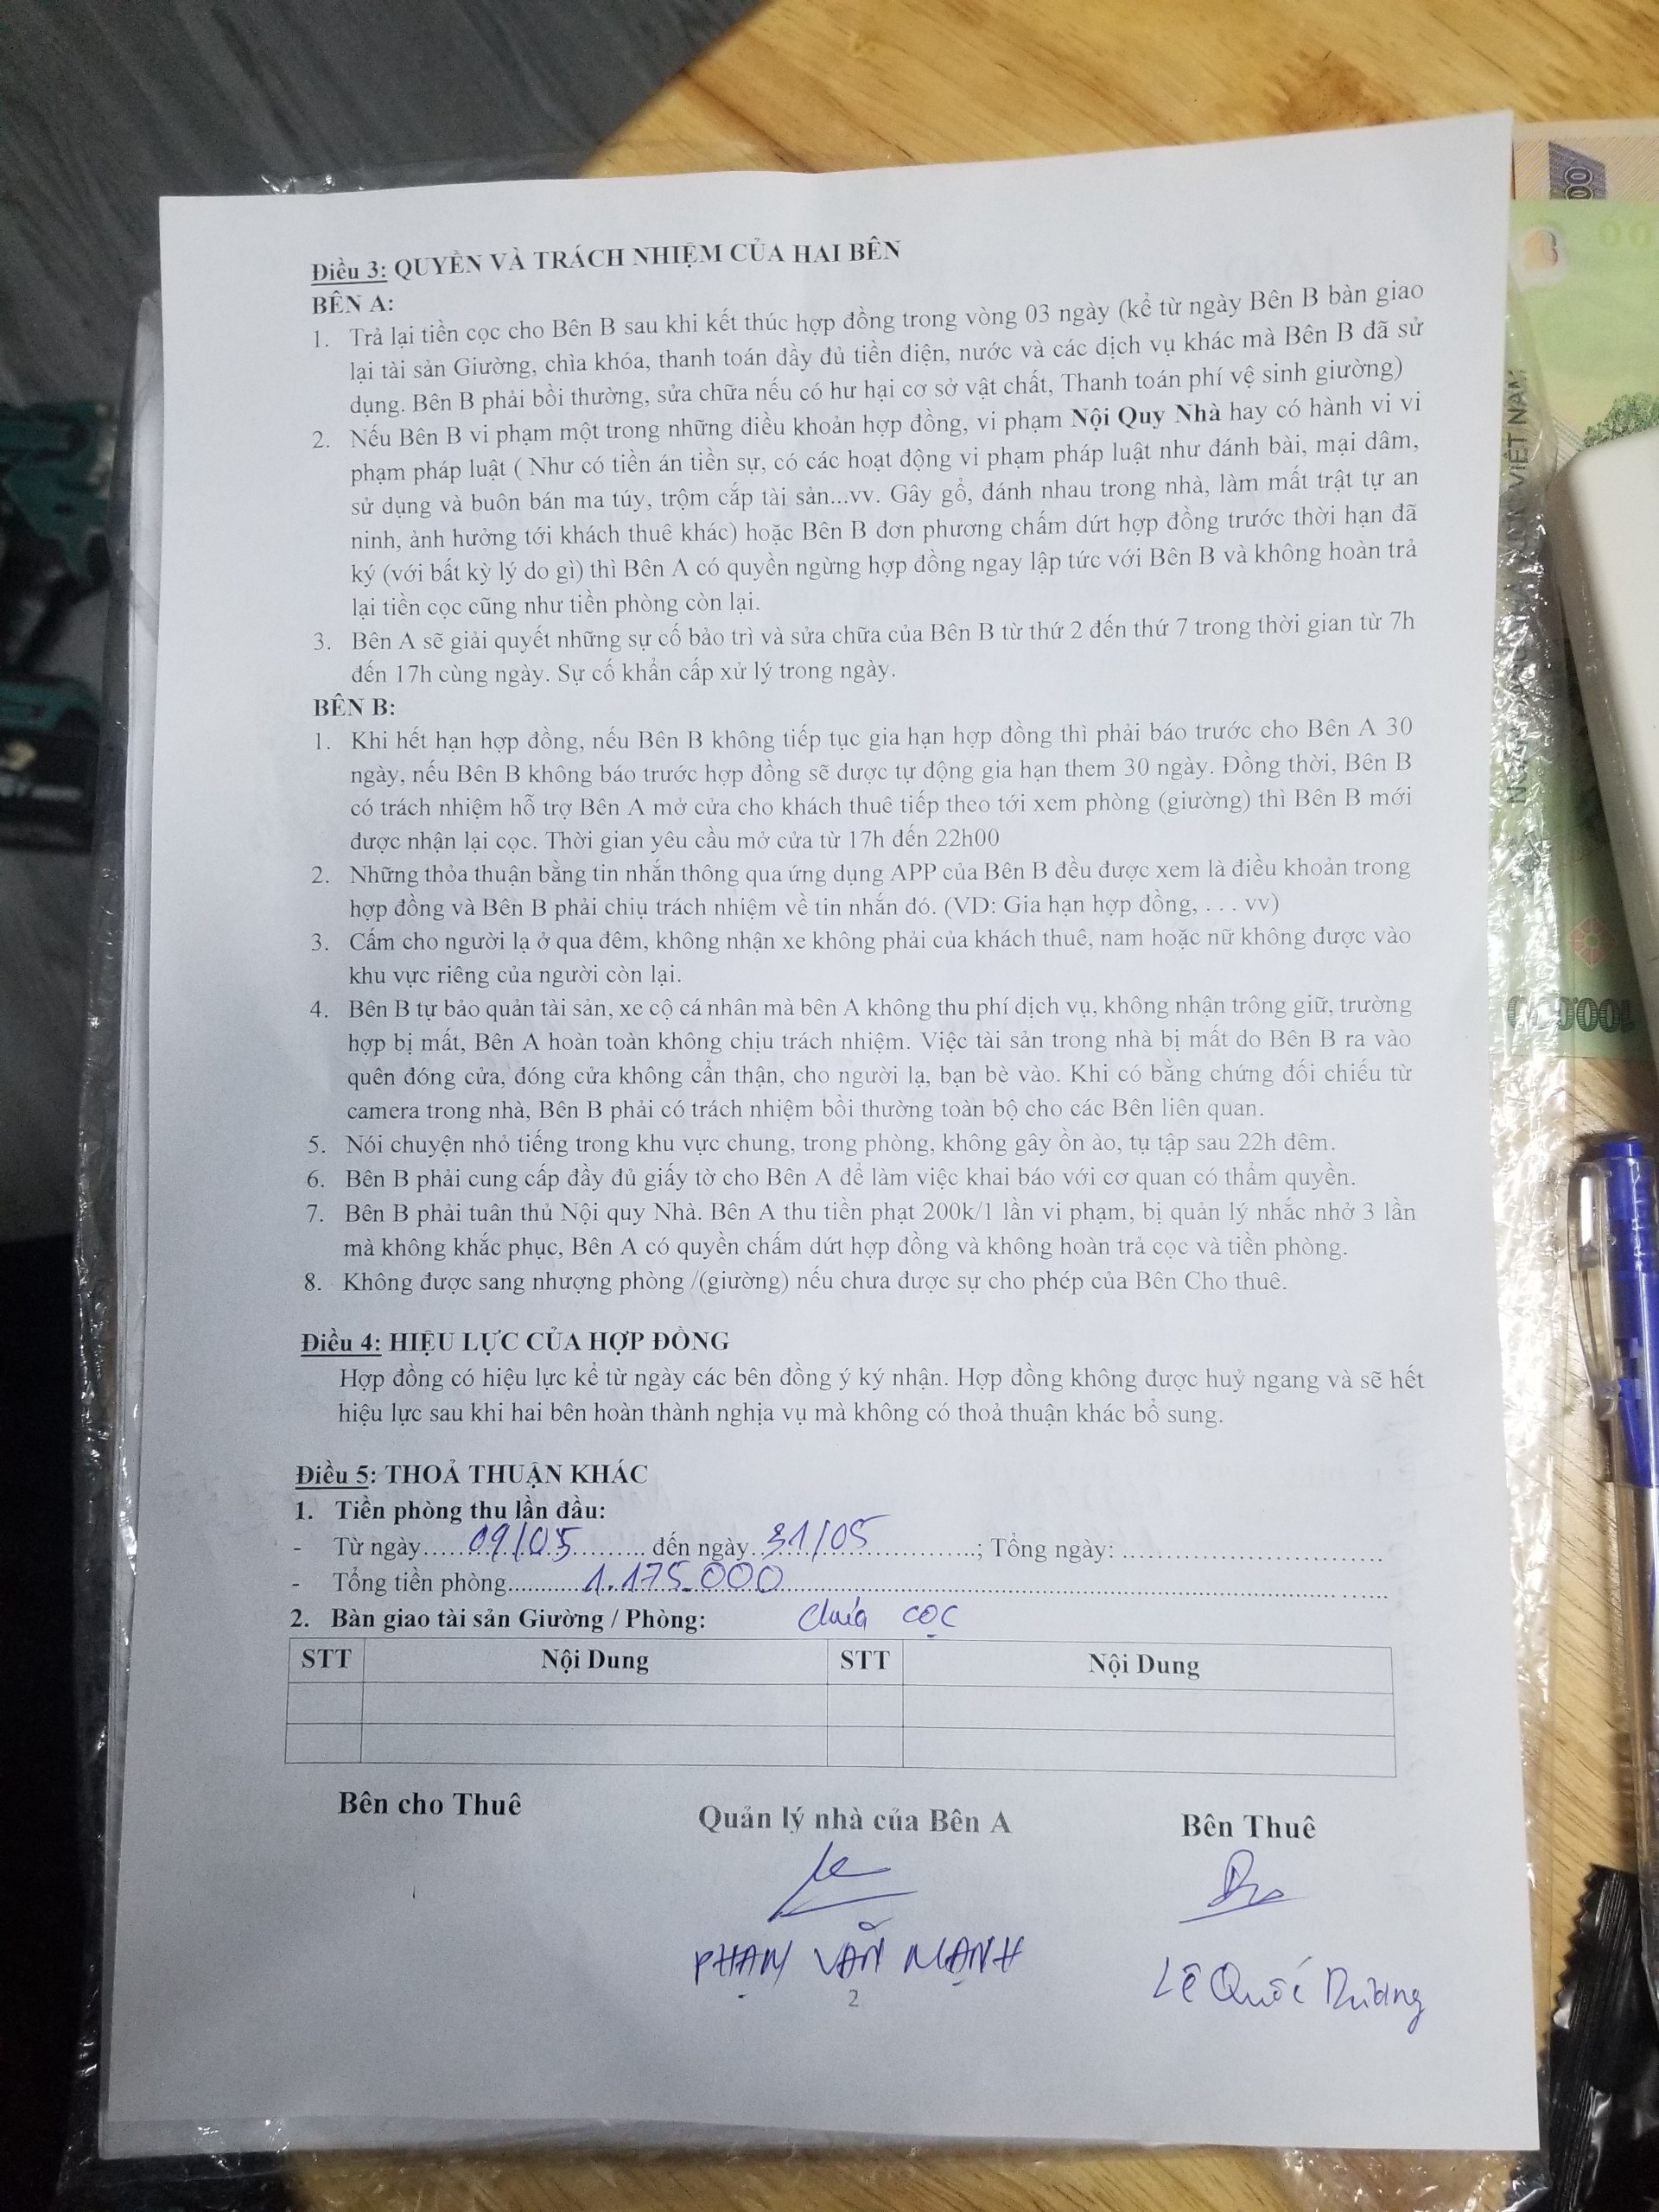 Điều 3: QUYỀN VÀ TRÁCH NHIỆM CỦA HAI BÊN
BÊN A:
1. Trả lại tiền cọc cho Bên B sau khi kết thúc hợp đồng trong vòng 03 ngày (kể từ ngày Bên B bàn giao
lại tài sản Giường, chìa khóa, thanh toán đầy đủ tiền điện, nước và các dịch vụ khác mà Bên B đã sử
dụng. Bên B phải bồi thường, sửa chữa nếu có hư hại cơ sở vật chất, Thanh toán phí vệ sinh giường)
2. Nếu Bên B vi phạm một trong những điều khoản hợp đồng, vi phạm Nội Quy Nhà hay có hành vi vi
phạm pháp luật ( Như có tiền án tiền sự, có các hoạt động vi phạm pháp luật như đánh bài, mại dâm,
sử dụng và buôn bán ma túy, trộm cắp tài sản...vv. Gây gổ, đánh nhau trong nhà, làm mất trật tự an
ninh, ảnh hưởng tới khách thuê khác) hoặc Bên B đơn phương chấm dứt hợp đồng trước thời hạn đã
ký (với bất kỳ lý do gì) thì Bên A có quyền ngừng hợp đồng ngay lập tức với Bên B và không hoàn trả
lại tiền cọc cũng như tiền phòng còn lại.
3. Bên A sẽ giải quyết những sự cố bảo trì và sửa chữa của Bên B từ thứ 2 đến thứ 7 trong thời gian từ 7h
đến 17h cùng ngày. Sự cố khẩn cấp xử lý trong ngày.
BÊN B:
1. Khi hết hạn hợp đồng, nếu Bên B không tiếp tục gia hạn hợp đồng thì phải báo trước cho Bên A 30
ngày, nếu Bên B không báo trước hợp đồng sẽ được tự động gia hạn them 30 ngày. Đồng thời, Bên B
có trách nhiệm hỗ trợ Bên A mở cửa cho khách thuê tiếp theo tới xem phòng (giường) thì Bên B mới
được nhận lại cọc. Thời gian yêu cầu mở cửa từ 17h đến 22h00
2. Những thỏa thuận bằng tin nhắn thông qua ứng dụng APP của Bên B đều được xem là điều khoản trong
hợp đồng và Bên B phải chịu trách nhiệm về tin nhắn đó. (VD: Gia hạn hợp đồng, . . . vv)
3. Cấm cho người lạ ở qua đêm, không nhận xe không phải của khách thuê, nam hoặc nữ không được vào
khu vực riêng của người còn lại.
4. Bên B tự bảo quản tài sản, xe cộ cá nhân mà bên A không thu phí dịch vụ, không nhận trông giữ, trường
hợp bị mất, Bên A hoàn toàn không chịu trách nhiệm. Việc tài sản trong nhà bị mất do Bên B ra vào
quên đóng cửa, đóng cửa không cẩn thận, cho người lạ, bạn bè vào. Khi có bằng chứng đối chiếu từ
camera trong nhà, Bên B phải có trách nhiệm bồi thường toàn bộ cho các Bên liên quan.
5. Nói chuyện nhỏ tiếng trong khu vực chung, trong phòng, không gây ồn ào, tụ tập sau 22h đêm.
6. Bên B phải cung cấp đầy đủ giấy tờ cho Bên A để làm việc khai báo với cơ quan có thẩm quyền.
7. Bên B phải tuân thủ Nội quy Nhà. Bên A thu tiền phạt 200k/1 lần vi phạm, bị quản lý nhắc nhở 3 lần
mà không khắc phục, Bên A có quyền chấm dứt hợp đồng và không hoàn trả cọc và tiền phòng.
8. Không được sang nhượng phòng /(giường) nếu chưa được sự cho phép của Bên Cho thuê.
Điều 4: HIỆU LỰC CỦA HỢP ĐỒNG
Hợp đồng có hiệu lực kể từ ngày các bên đồng ý ký nhận. Hợp đồng không được huỷ ngang và sẽ hết
hiệu lực sau khi hai bên hoàn thành nghịa vụ mà không có thoả thuận khác bổ sung.
Điều 5: THOẢ THUẬN KHÁC
1. Tiền phòng thu lần đầu:
- Từ ngày.....09/05.......... đến ngày..31/05..............; Tổng ngày: ..............................
- Tổng tiền phòng..........1.175.000..............................
2. Bàn giao tài sản Giường / Phòng: chưa cọc
STT Nội Dung STT Nội Dung
Bên cho Thuê Quản lý nhà của Bên A Bên Thuê
PHẠM VĂN MẠNH
Lê Quốc Dương
2
VIỆT NAM